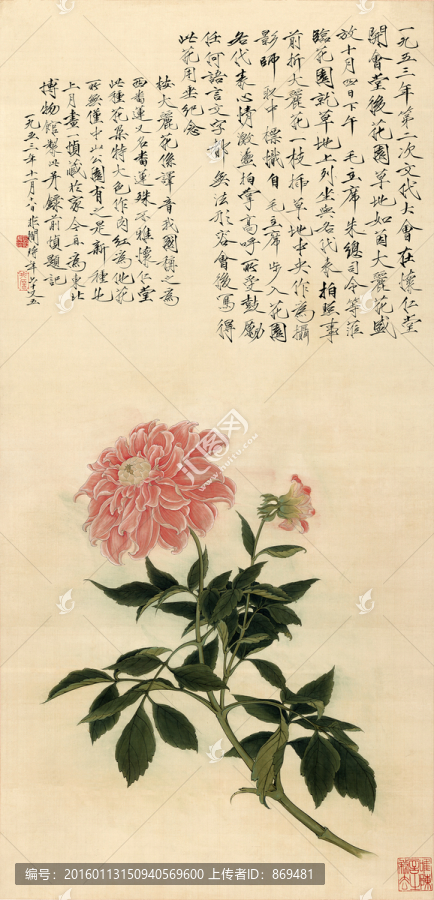 一九五三年第二次文代大會在懷仁堂
開會堂後花園草地如茵大麗花盛
放十月四日下午 毛主席 朱總司令等蒞
臨花園就草地上列坐與各代表拍照事
前折大麗花一枝插草地中央作為攝
影師取中標識自毛主席步入花園
各代表心情激盪拍掌高呼所受鼓勵
任何語言文字都無法形容會後寫得
此花用坐紀念
按大麗花係譯音我國稱之為
西番蓮又名番蓮殊不雅懷仁堂
此種花朵特大色作肉紅為他花
所無僅中山公園有之是新種也
上月畫一幀藏於家今且為東北
博物館製此并錄前幀題記
一九五三年十一月六日 非闇時年六十又五
编号：20160113150940569600 上传者ID：869481